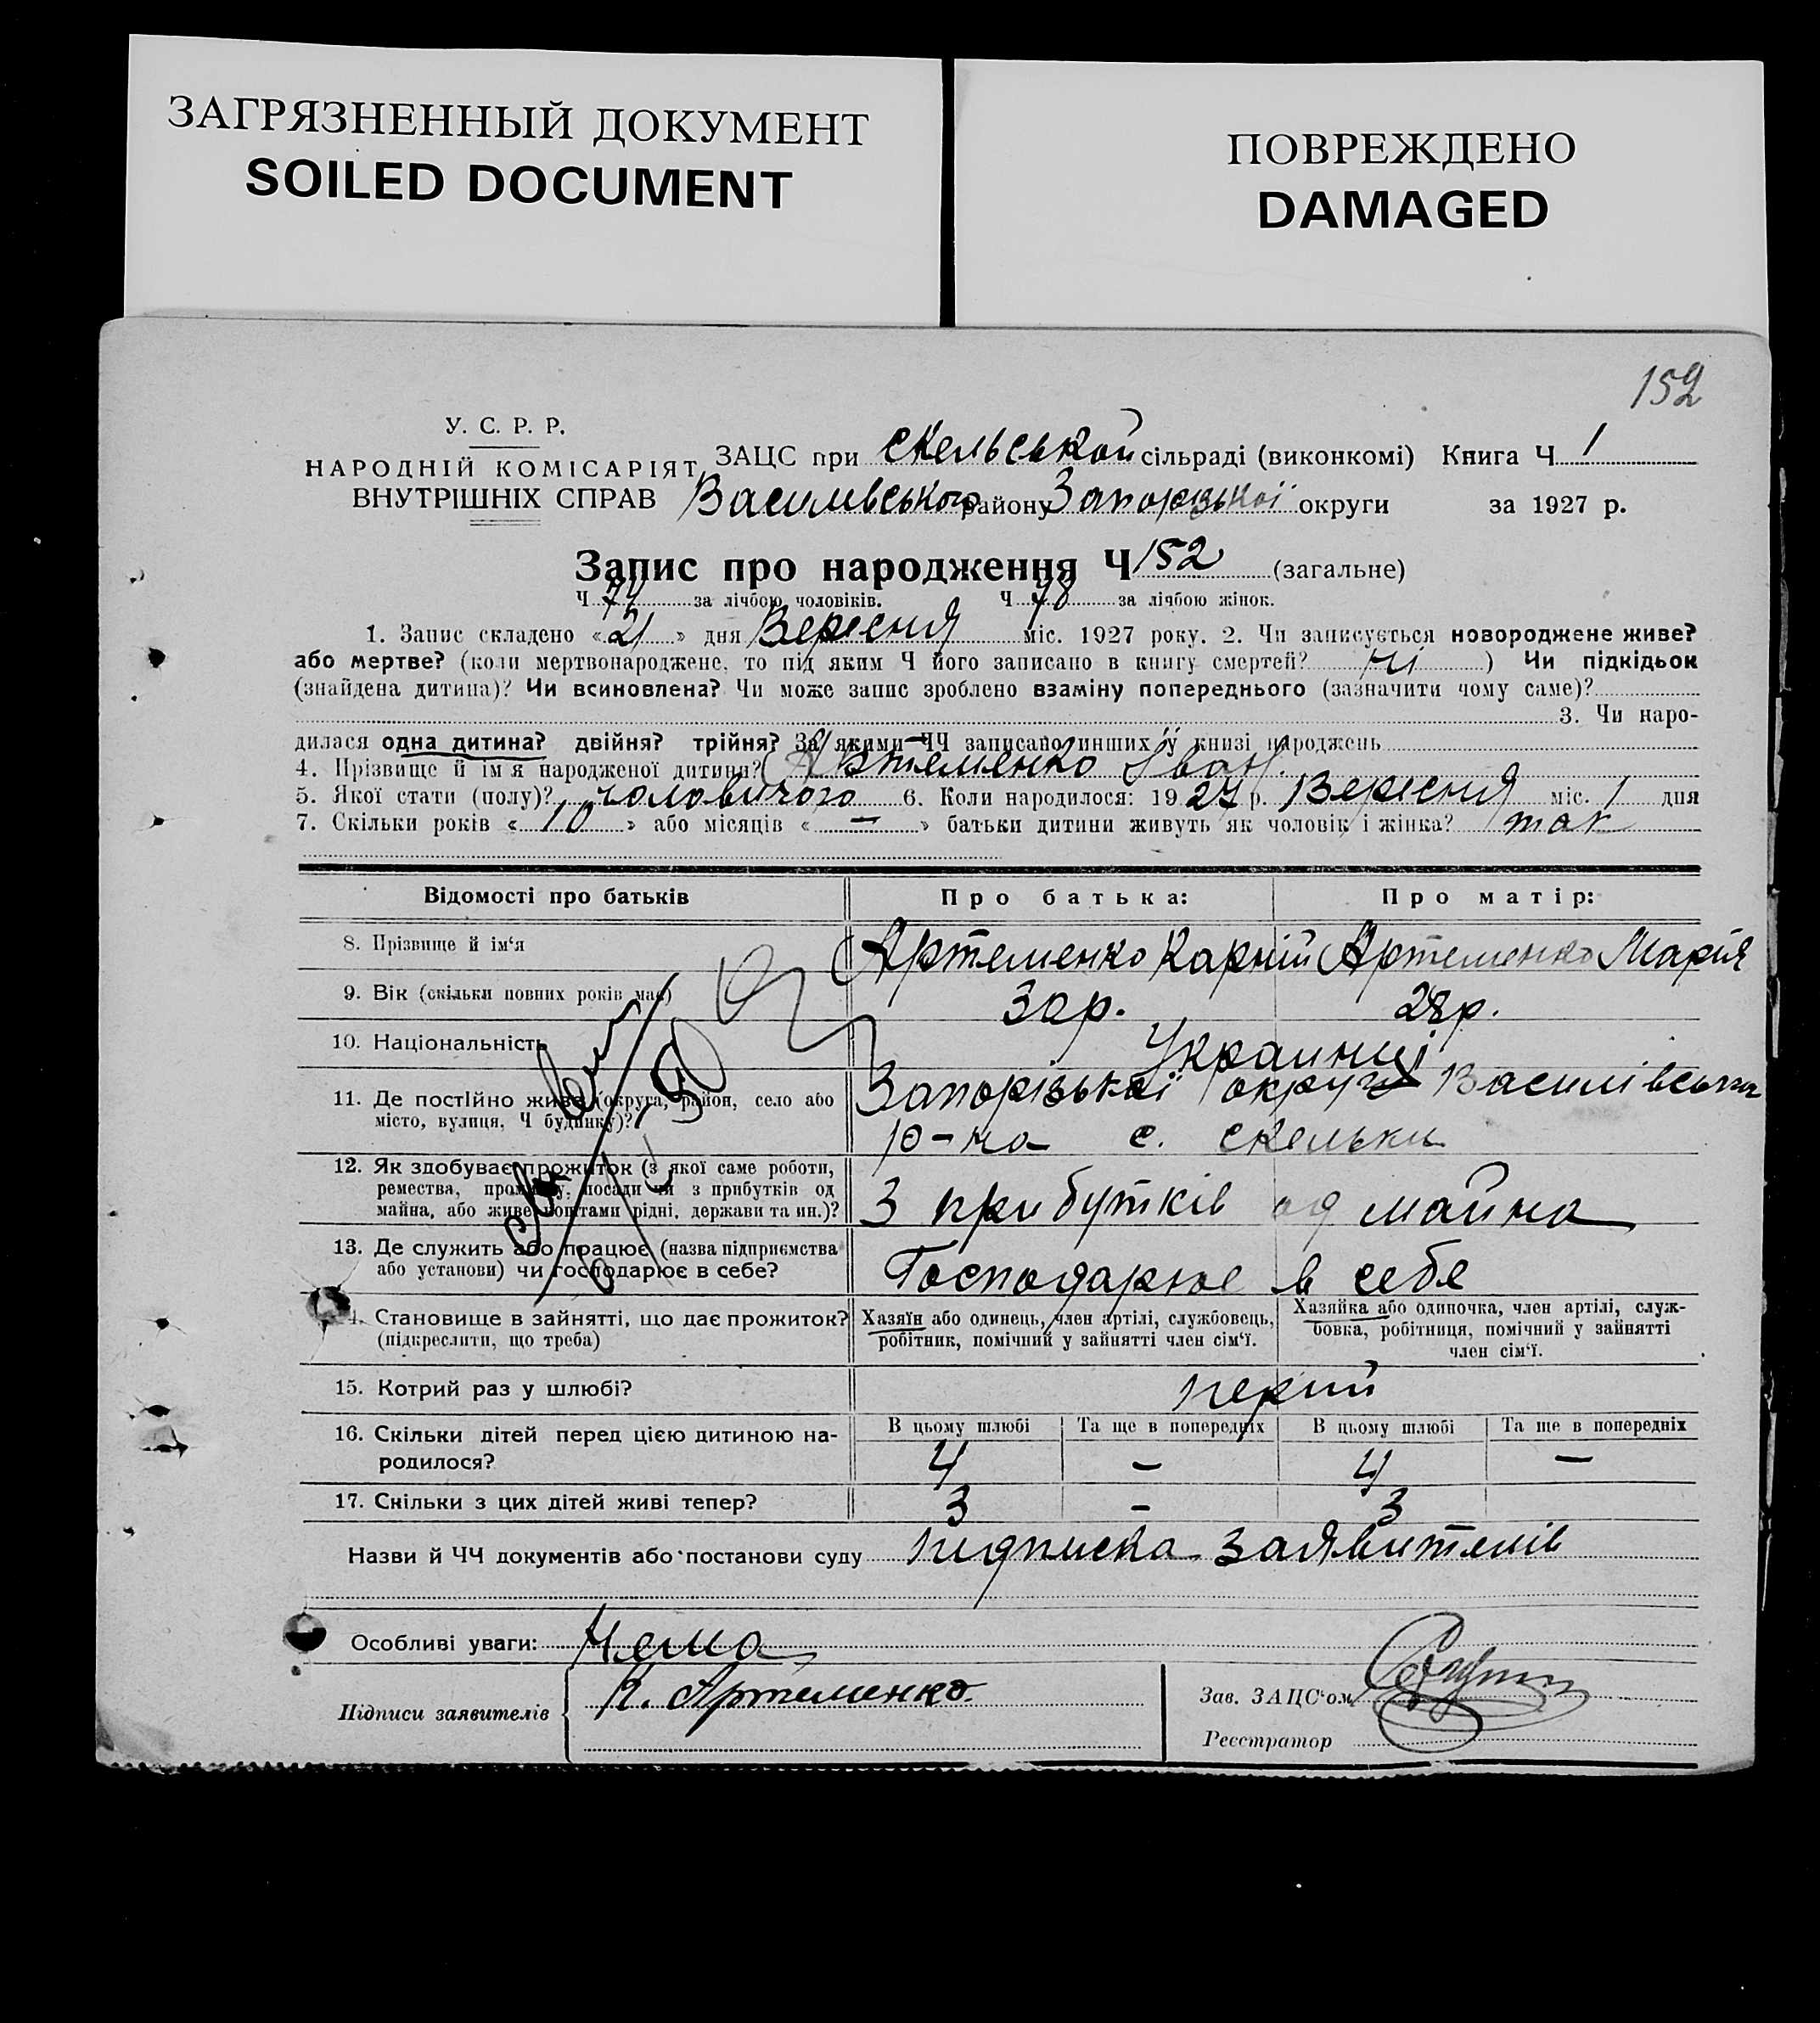 ЗАГРЯЗНЕННЫЙ ДОКУМЕНТ
SOILED DOCUMENT
ПОВРЕЖДЕНО
DAMAGED
152
У. С. Р. Р.
НАРОДНІЙ КОМІСАРІЯТ
ВНУТРІШНІХ СПРАВ
ЗАЦС при Скельськой сільраді (виконкомі) Книга Ч 1
Василівського району Запорізької округи за 1927 р.
Запис про народження Ч 152 (загальне)
Ч 74 за лічбою чоловіків. Ч 78 за лічбою жінок.
1. Запис складено «21» дня Вересня міс. 1927 року. 2. Чи записується новороджене живе?
або мертве? (коли мертвонароджене, то під яким Ч його записано в книгу смертей? ні ) Чи підкідьок
(знайдена дитина)? Чи всиновлена? Чи може запис зроблено взаміну попереднього (зазначити чому саме)?
3. Чи наро-
дилася одна дитина? двійня? трійня? За якими ЧЧ записано инших у книзі народжень
4. Прізвище й ім'я народженої дитини? Артеменко Іван.
5. Якої стати (полу)? чоловичого 6. Коли народилося: 1927 р. Вересня міс. 1 дня
7. Скільки років «10» або місяців «—» батьки дитини живуть як чоловік і жінка? так
Відомості про батьків Про батька: Про матір:
8. Прізвище й ім'я Артеменко Карній Артеменко Марія
9. Вік (скільки повних років має) 30р. 28р.
10. Національність Украинці
11. Де постійно живе (округа, район, село або Запорізької округи Василівськи
місто, вулиця, Ч будинку)? р-на с. Скельки
12. Як здобуває прожиток (з якої саме роботи,
ремества, промислу, посади чи з прибутків од
майна, або живе коштами рідні, держави та ин.)? З прибутків од майна
13. Де служить або працює (назва підприємства
або установи) чи господарює в себе? Господарює в себе
14. Становище в зайнятті, що дає прожиток? Хазяїн або одинець, член артілі, службовець, Хазяйка або одиночка, член артілі, служ-
(підкреслити, що треба) робітник, помічний у зайнятті член сім'ї. бовка, робітниця, помічний у зайнятті
член сім'ї.
15. Котрий раз у шлюбі? перший
16. Скільки дітей перед цією дитиною на- В цьому шлюбі Та ще в попередніх В цьому шлюбі Та ще в попередніх
родилося? 4 — 4 —
17. Скільки з цих дітей живі тепер? 3 — 3
Назви й ЧЧ документів або постанови суду підписка заявителів
Особливі уваги: Нема
Підписи заявителів К. Артеменко
Зав. ЗАЦС'ом
Реєстратор